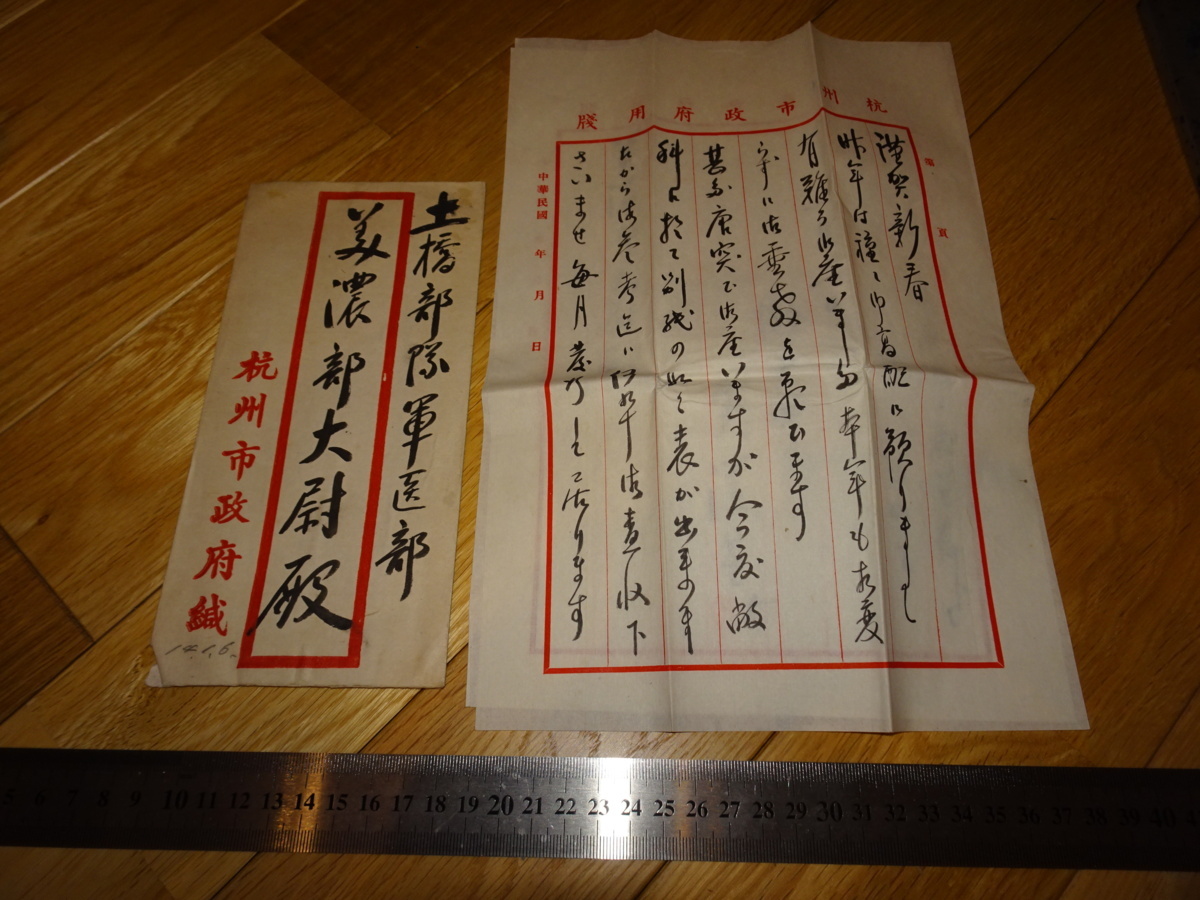 土橋部隊軍医部
美濃部大尉殿
杭州市政府緘
14.1.6.
杭州市政府用牋
第 頁
謹賀新春
昨年は種々御高配に預りまして
有難う御座いました 本年も相変
らずに御垂教を願ひます
甚だ唐突で御座いますが今度敝
科に於て別紙の如く表が出来ま
したから御参考迄に 御査収下
さいませ 毎月発行して居ります
中華民國 年 月 日
5 6 7 8 9 10 11 12 13 14 15 16 17 18 19 20 21 22 23 24 25 26 27 28 29 30 31 32 33 34 35 36 37 38 39 40